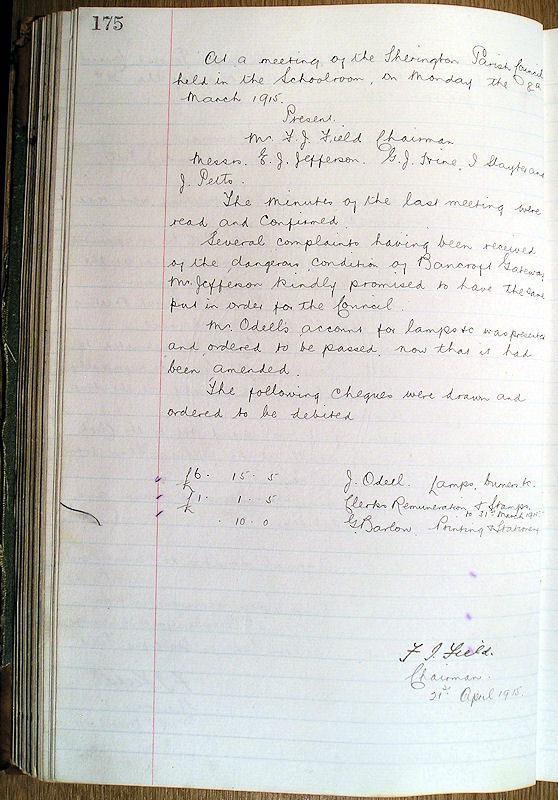 175
At a meeting of the Sherington Parish Council
held in the Schoolroom, on Monday the 8th
March 1915.
Present.
Mr. F. J. Field Chairman
Messrs. E. J. Jefferson. G. J. Irine, J Slayter and
J. Petts.
The minutes of the last meeting were
read and confirmed
Several complaints having been received
of the dangerous condition of Bancroft Gateway
Mr. Jefferson kindly promised to have the same
put in order for the Council.
Mr. Odells account for lamps &c was presented
and ordered to be passed, now that it had
been amended.
The following cheques were drawn and
ordered to be debited
£6. 15. 5 J. Odell. Lamps, burners &c.
1. 1. 5 Clerks Remuneration & Stamps.
to 31st March 1915
. 10. 0 G. Barlow. Printing & Stationery
F. J. Field.
Chairman.
21st April 1915.